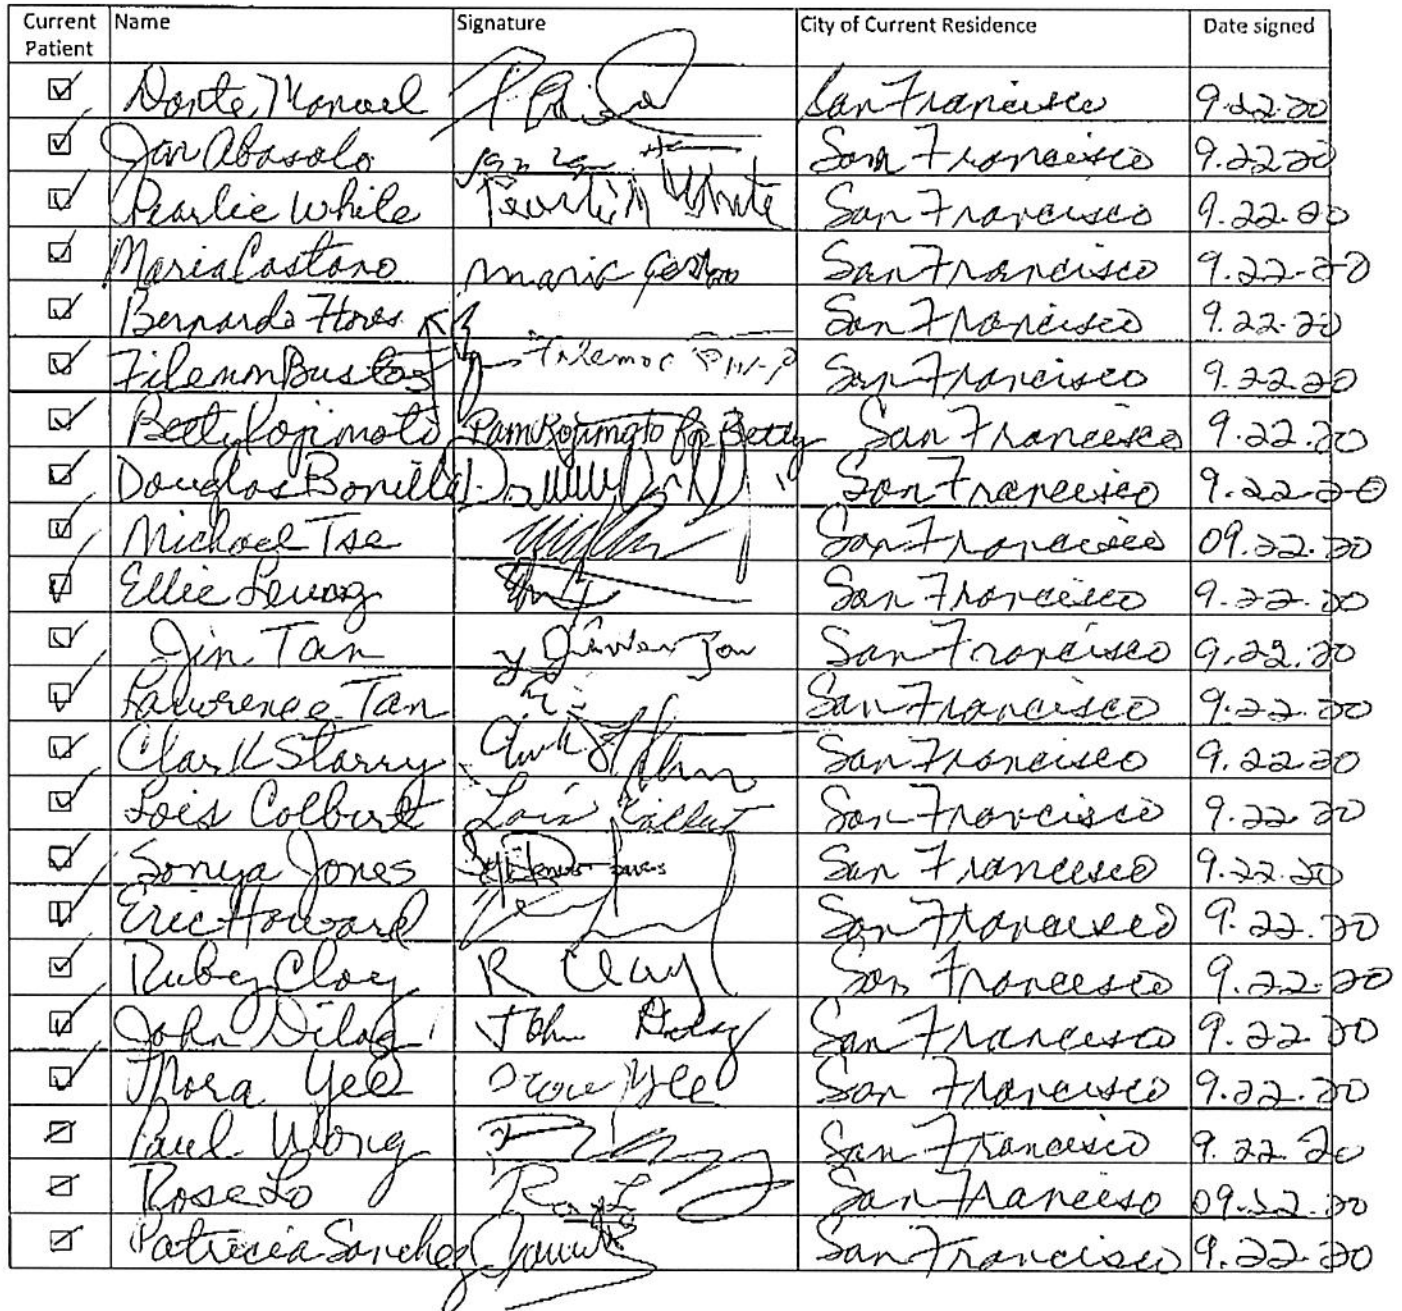 Current Patient Name Signature City of Current Residence Date signed
Dante Manuel San Francisco 9.22.20
Jan Abasolo San Francisco 9.22.20
Pearlie White Pearlie White San Francisco 9.22.20
Maria Castano Maria Castano San Francisco 9.22.20
Bernardo Flores San Francisco 9.22.20
Filemon Bustos Filemon San Francisco 9.22.20
Betty Kojimoto Pam Kojimoto for Betty San Francisco 9.22.20
Douglas Bonilla San Francisco 9.22.20
Michael Tse San Francisco 09.22.20
Ellie Leung San Francisco 9.22.20
Jin Tan San Francisco 9.22.20
Lawrence Tan San Francisco 9.22.20
Clark Starry San Francisco 9.22.20
Lois Colbert Lois Colbert San Francisco 9.22.20
Sonya Jones San Francisco 9.22.20
Eric Howard San Francisco 9.22.20
Ruby Clay R Clay San Francisco 9.22.20
John Dilag John San Francisco 9.22.20
Thora Yee Yee San Francisco 9.22.20
Paul Wong San Francisco 9.22.20
Rose Lo San Franciso 09.22.20
Patricia Sanchez San Francisco 9.22.20